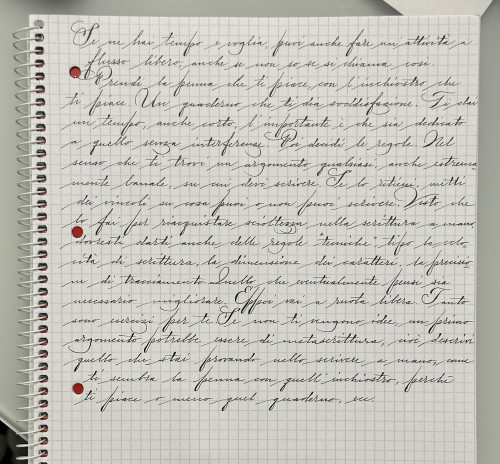 Se ne hai tempo e voglia puoi anche fare un'attività a
flusso libero, anche se non so se si chiama così.
Prendi la penna che ti piace, con l'inchiostro che
ti piace. Un quaderno che ti dia soddisfazione. Ti dai
un tempo, anche corto, l'importante è che sia dedicato
a quello senza interferenze. Poi decidi le regole. Nel
senso che ti trovi un argomento qualsiasi, anche estrema
mente banale, su cui devi scrivere. Se lo ritieni, metti
dei vincoli su cosa puoi o non puoi scrivere. Visto che
lo fai per riacquistare scioltezza nella scrittura a mano,
dovresti darti anche delle regole "tecniche", tipo la velo
cità di scrittura, la dimensione dei caratteri, la precisio
ne di tracciamento. Quello che eventualmente pensi sia
necessario migliorare. Eppoi vai a ruota libera. Tanto
sono esercizi per te. Se non ti vengono idee, un primo
argomento potrebbe essere di metascrittura, cioè descrivi
quello che stai provando nello scrivere a mano, come
ti sembra la penna con quell'inchiostro, perché
ti piace o meno quel quaderno, ecc.